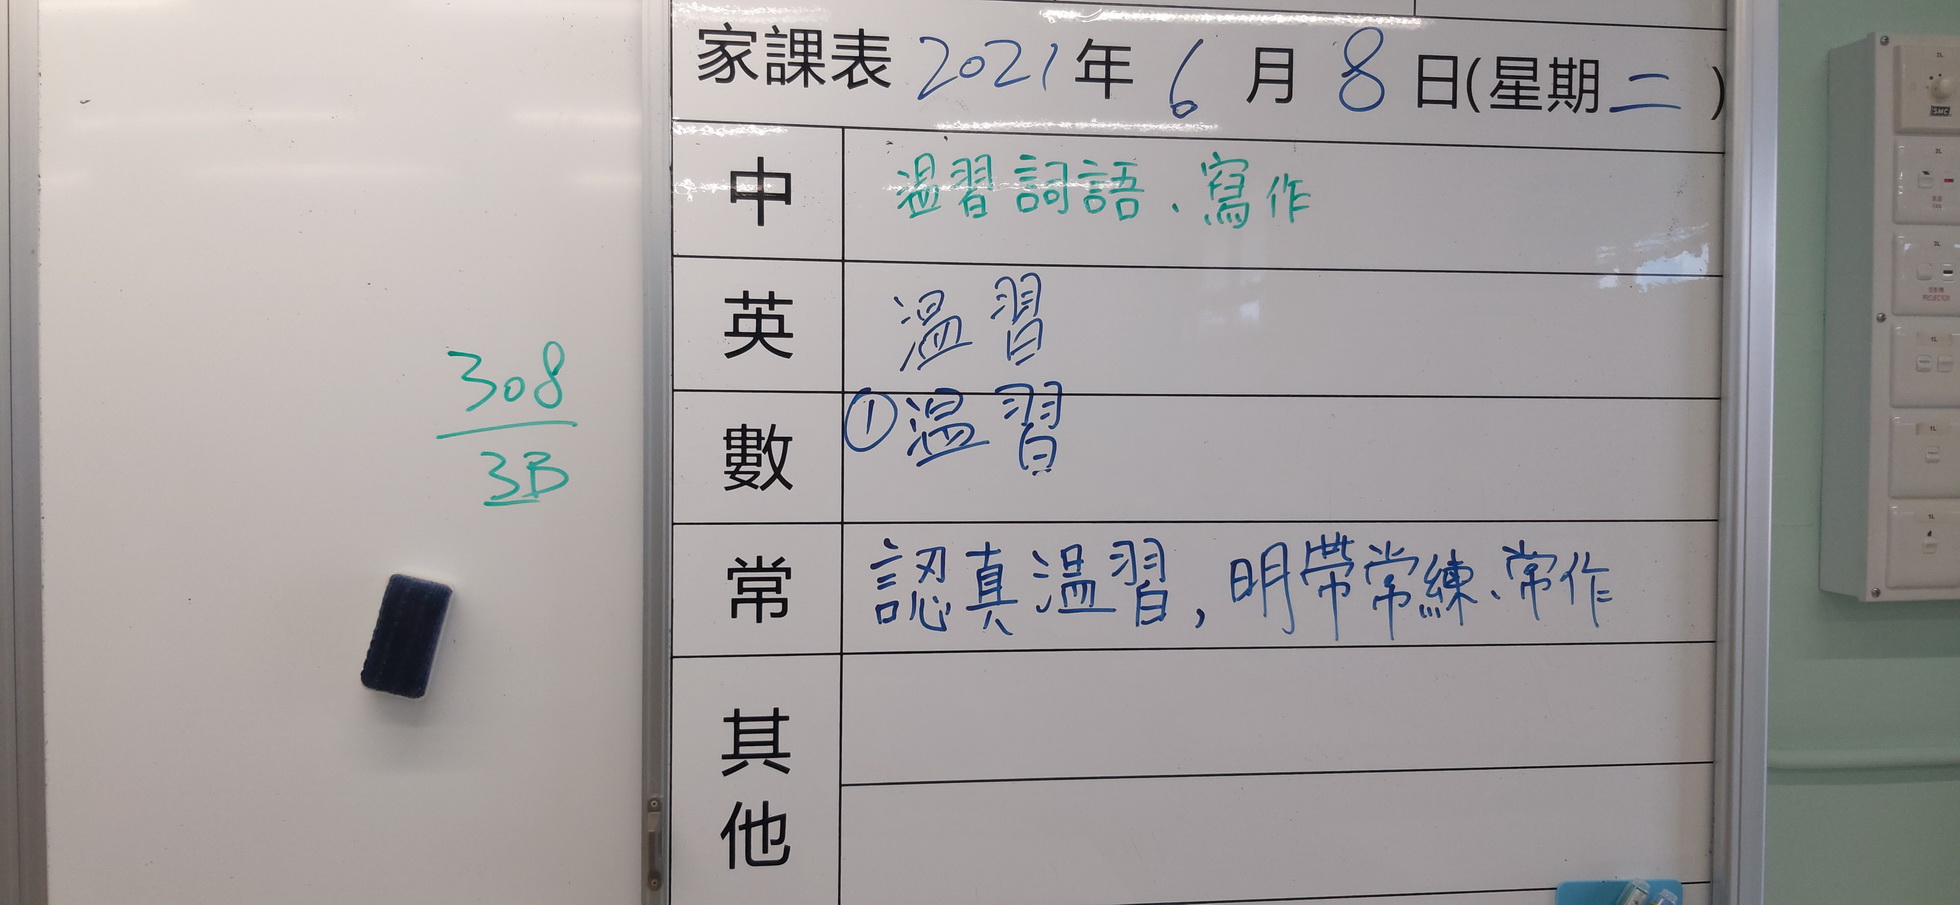 308
3B
家課表 2021年 6 月 8 日(星期二)
中 温習詞語、寫作
英 溫習
數 ①溫習
常 認真溫習,明帶常練、常作
其他